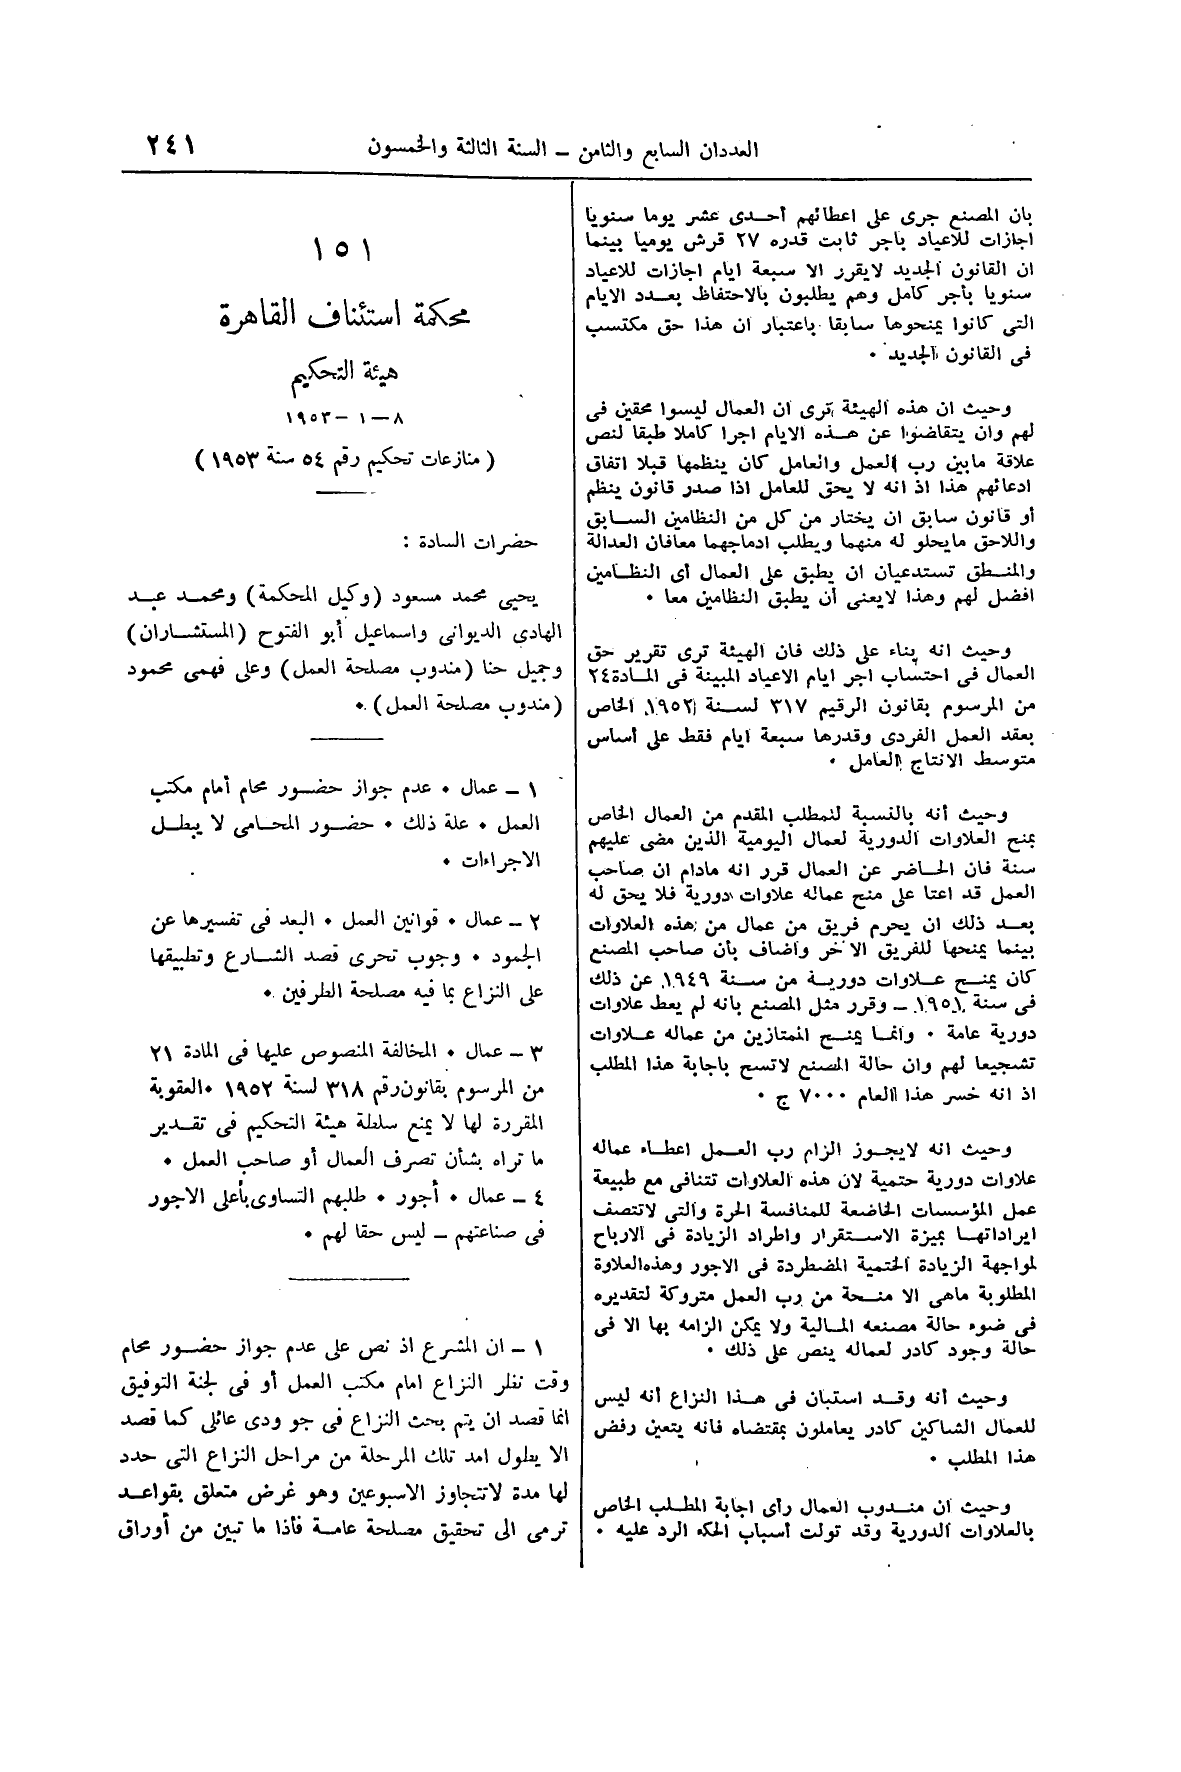 العددان السابع والثامن – السنة الثالثة والخمسون
٢٤١
بان المصنع جرى على اعطائهم أحدى عشر يوما سنويا
اجازات للاعياد باجر ثابت قدره ٢٧ قرش يوميا بينما
ان القانون الجديد لايقرر الا سبعة ايام اجازات للاعياد
سنويا بأجر كامل وهم يطلبون بالاحتفاظ بعدد الايام
التى كانوا يمنحوها سابقا باعتبار ان هذا حق مكتسب
فى القانون الجديد ٠
وحيث ان هذه الهيئة ترى ان العمال ليسوا محقين فى
لهم وان يتقاضوا عن هذه الايام اجرا كاملا طبقا لنص
علاقة مابين رب العمل والعامل كان ينظمها قبلا اتفاق
ادعائهم هذا اذ انه لا يحق للعامل اذا صدر قانون ينظم
أو قانون سابق ان يختار من كل من النظامين السابق
واللاحق مايحلو له منهما ويطلب ادماجهما معافان العدالة
والمنطق تستدعيان ان يطبق على العمال أى النظامين
افضل لهم وهذا لايعنى أن يطبق النظامين معا ٠
وحيث انه بناء على ذلك فان الهيئة ترى تقرير حق
العمال فى احتساب اجر ايام الاعياد المبينة فى المادة٢٤
من المرسوم بقانون الرقيم ٣١٧ لسنة ١٩٥٢ الخاص
بعقد العمل الفردى وقدرها سبعة ايام فقط على أساس
متوسط الانتاج العامل ٠
وحيث أنه بالنسبة للمطلب المقدم من العمال الخاص
بمنح العلاوات الدورية لعمال اليومية الذين مضى عليهم
سنة فان الحاضر عن العمال قرر انه مادام ان صاحب
العمل قد اعتا على منح عماله علاوات دورية فلا يحق له
بعد ذلك ان يحرم فريق من عمال من هذه العلاوات
بينما يمنحها للفريق الآخر واضاف بأن صاحب المصنع
كان يمنح علاوات دورية من سنة ١٩٤٩ عن ذلك
فى سنة ١٩٥١ – وقرر مثل المصنع بانه لم يعط علاوات
دورية عامة ٠ وانما يمنح الممتازين من عماله علاوات
تشجيعا لهم وان حالة المصنع لاتسح باجابة هذا المطلب
اذ انه خسر هذا العام ٧٠٠٠ ج ٠
وحيث انه لايجوز الزام رب العمل اعطاء عماله
علاوات دورية حتمية لان هذه العلاوات تتنافى مع طبيعة
عمل المؤسسات الخاضعة للمنافسة الحرة والتى لاتتصف
ايراداتها بميزة الاستقرار واطراد الزيادة فى الارباح
لمواجهة الزيادة الحتمية المضطردة فى الاجور وهذهالعلاوة
المطلوبة ماهى الا منحة من رب العمل متروكة لتقديره
فى ضوء حالة مصنعه المالية ولا يمكن الزامه بها الا فى
حالة وجود كادر لعماله ينص على ذلك ٠
وحيث أنه وقد استبان فى هذا النزاع أنه ليس
للعمال الشاكين كادر يعاملون بمقتضاه فانه يتعين رفض
هذا المطلب ٠
وحيث ان مندوب العمال رأى اجابة المطلب الخاص
بالعلاوات الدورية وقد تولت أسباب الحكم الرد عليه ٠
١٥١
محكمة استئناف القاهرة
هيئة التحكيم
٨–١–١٩٥٣
( منازعات تحكيم رقم ٥٤ سنة ١٩٥٣ )
حضرات السادة :
يحيى محمد مسعود (وكيل المحكمة) ومحمد عبد
الهادى الديوانى واسماعيل أبو الفتوح (المستشاران)
وجميل حنا (مندوب مصلحة العمل) وعلى فهمى محمود
(مندوب مصلحة العمل) ٠
١ – عمال ٠ عدم جواز حضور محام أمام مكتب
العمل ٠ علة ذلك ٠ حضور المحامى لا يبطل
الاجراءات ٠
٢ – عمال ٠ قوانين العمل ٠ البعد فى تفسيرها عن
الجمود ٠ وجوب تحرى قصد الشارع وتطبيقها
على النزاع بما فيه مصلحة الطرفين ٠
٣ – عمال ٠ المخالفة المنصوص عليها فى المادة ٢١
من المرسوم بقانون رقم ٣١٨ لسنة ١٩٥٢ ٠العقوبة
المقررة لها لا يمنع سلطة هيئة التحكيم فى تقدير
ما تراه بشأن تصرف العمال أو صاحب العمل ٠
٤ – عمال ٠ أجور ٠ طلبهم التساوى بأعلى الاجور
فى صناعتهم – ليس حقا لهم ٠
١ – ان المشرع اذ نص على عدم جواز حضور محام
وقت نظر النزاع امام مكتب العمل أو فى لجنة التوفيق
انما قصد ان يتم بحث النزاع فى جو ودى عائلى كما قصد
الا يطول امد تلك المرحلة من مراحل النزاع التى حدد
لها مدة لاتتجاوز الاسبوعين وهو غرض متعلق بقواعد
ترمى الى تحقيق مصلحة عامة فأذا ما تبين من أوراق